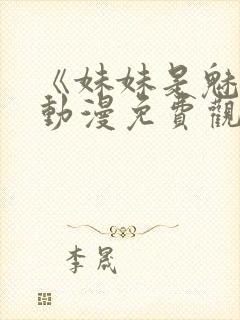 《妹妹是魅
動漫免費觀
李晟